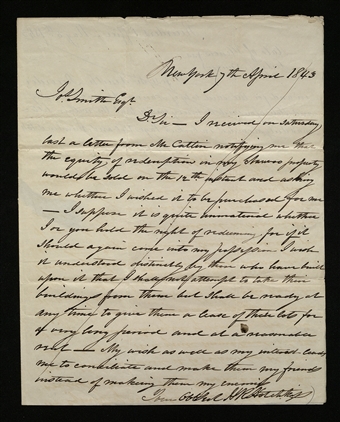 New York 7th April 1843
Jos Smith Esqr
Dr Sir — I received on Saturday
last a letter from Mr Catlin notifying me that
the equity of redemption in my property
would be sold on the 12th instant and asking
me whether I wished it to be purchased for me
— I suppose it is quite immaterial whether
I or you hold the right of redeeming for if it
should again come into my possession I wish
it understood distinctly by those who have built
upon it that I shall not attempt to take their
buildings from them but shall be ready at
any time to give them a lease of their lots for
a very long period and at a reasonable
rent — My wish as well as my interest leads
me to conciliate and make them my friends
instead of making them my enemies
Your Obt Svt H R Hotchkiss